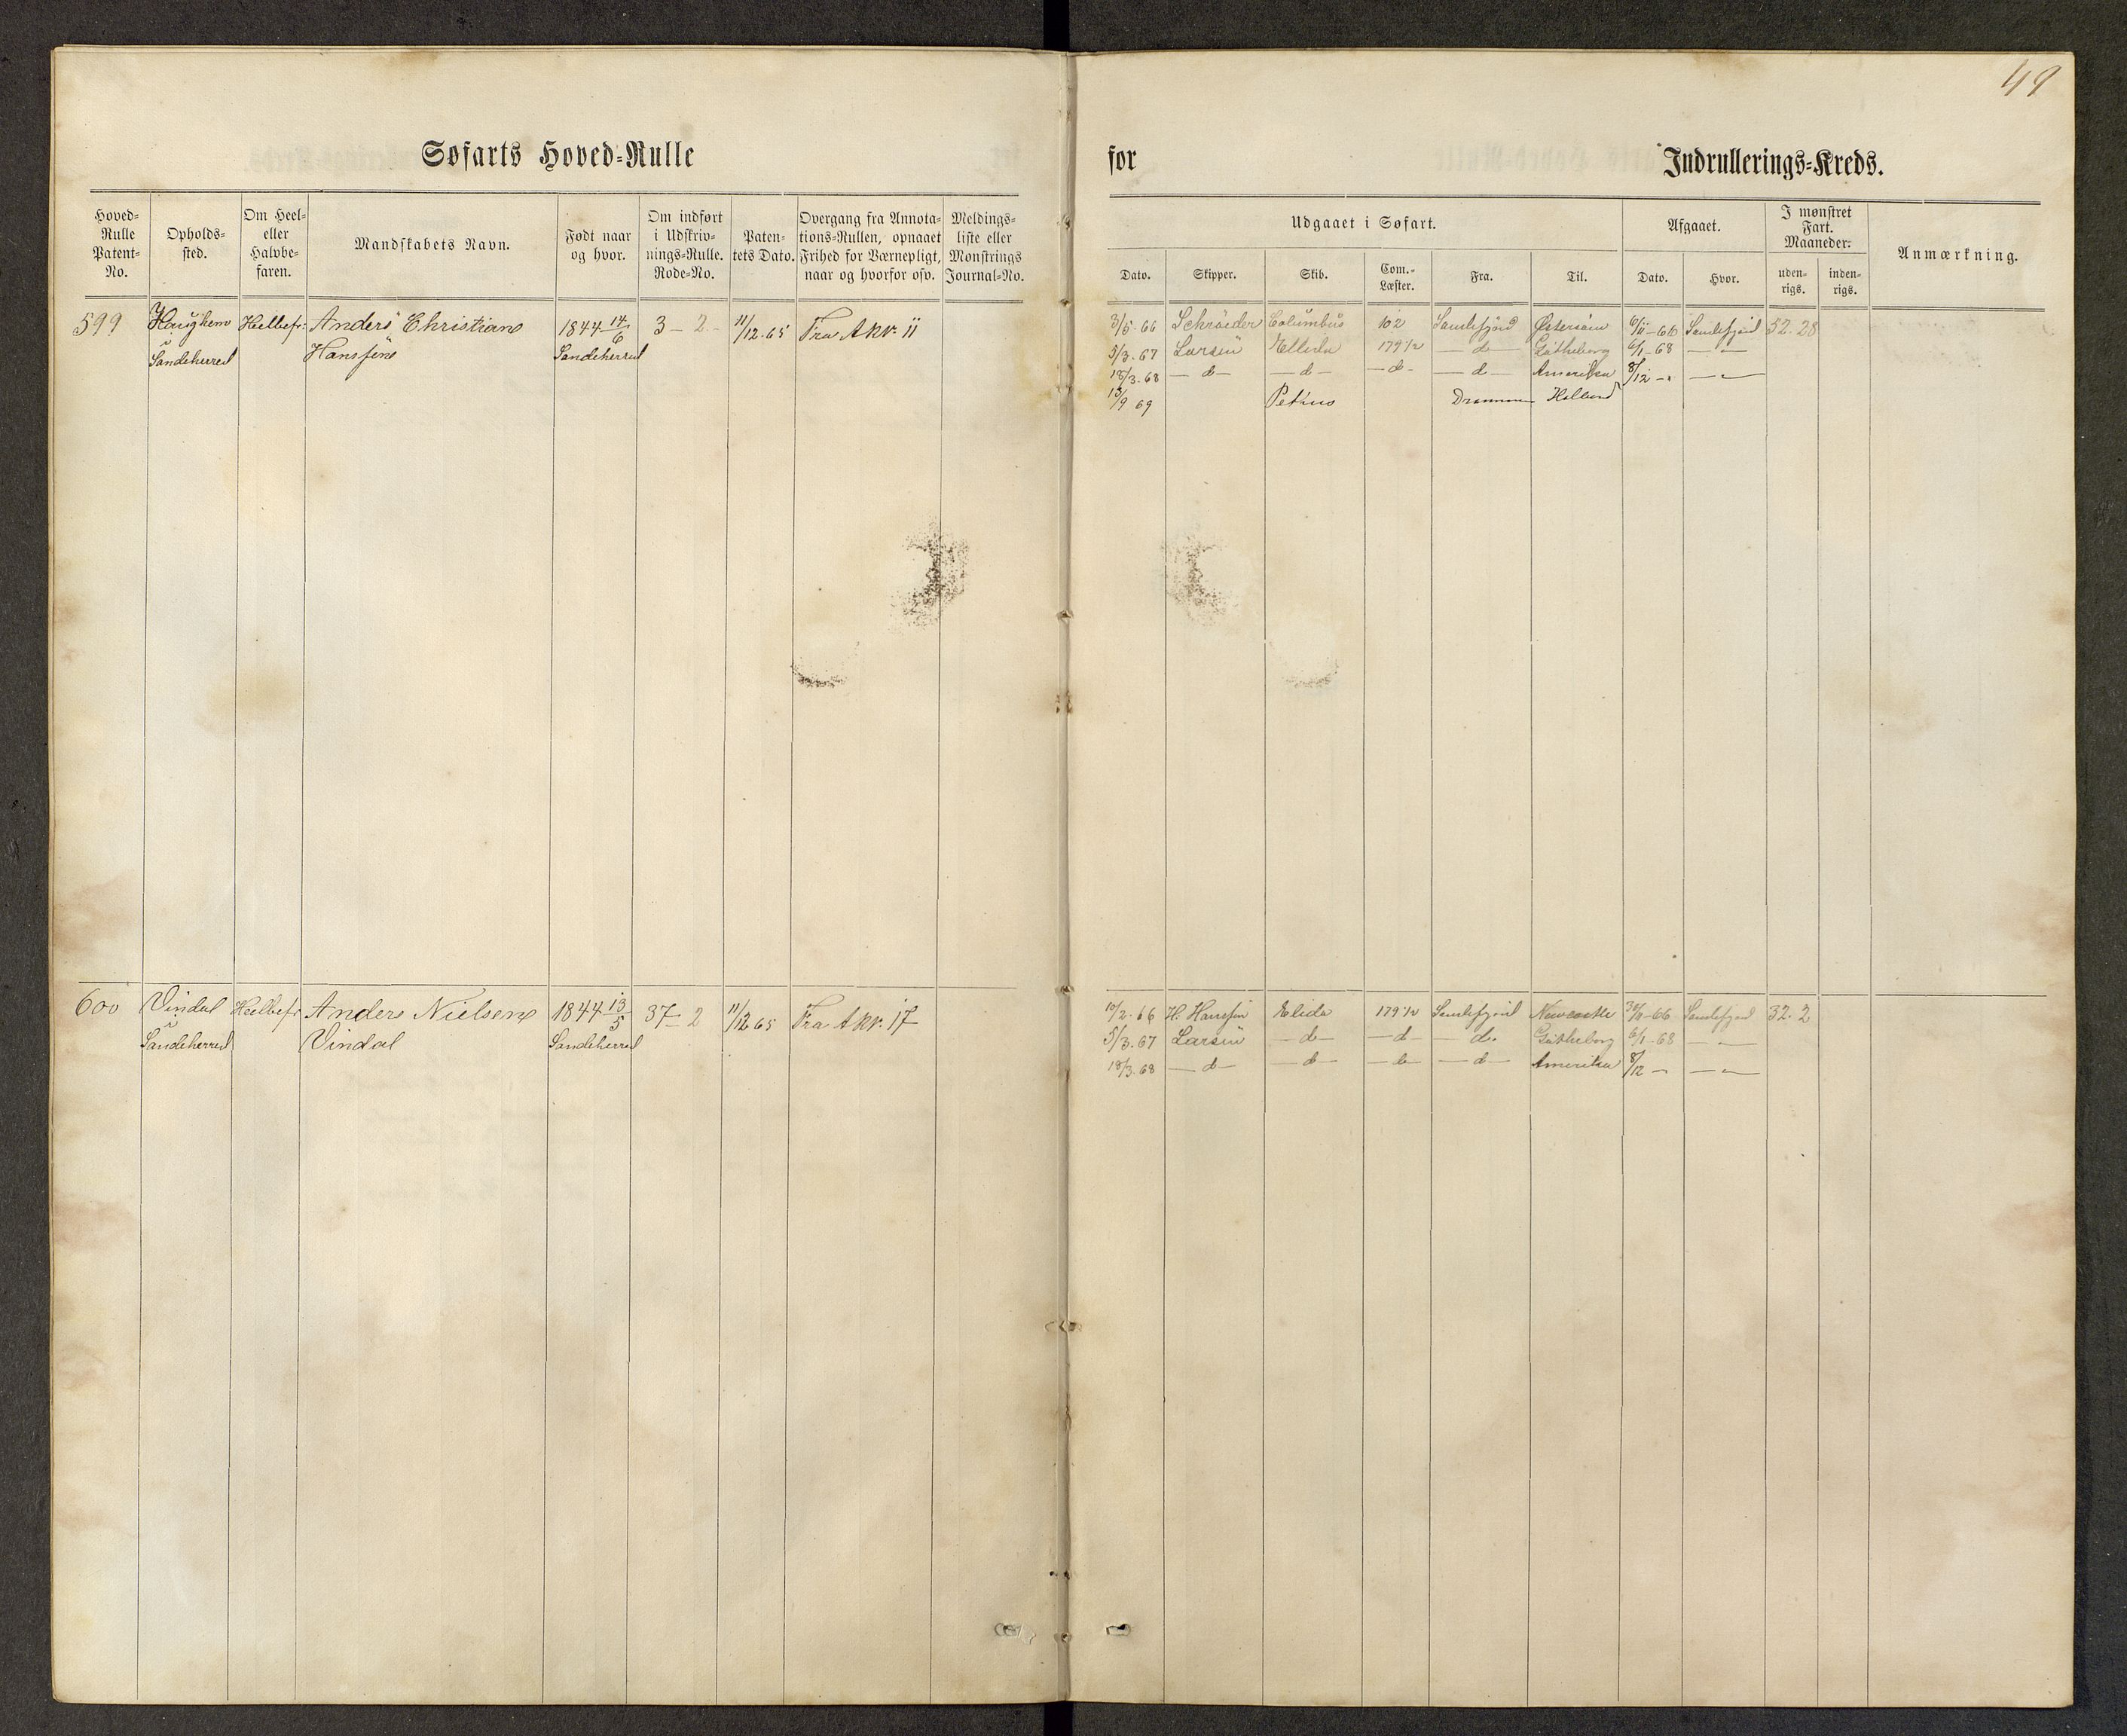 49
Søfarts Hoved-Rulle for Indrullerings-Kreds.
Hoved-Rulle Patent-No. Opholds-sted. Om Heel- eller Halvbe-faren. Mandskabets Navn. Født naar og hvor. Om indført i Udskriv-nings-Rulle. Rode-No. Paten-tets Dato. Overgang fra Annota-tions-Rullen, opnaaet Frihed for Værnepligt, naar og hvorfor osv. Meldings-liste eller Mønstrings Journal-No.
Udgaaet i Søfart. Afgaaet. I mønstret Fart. Maaneder: Anmærkning.
Dato. Skipper. Skib. Com.-Læster. Fra. Til. Dato. Hvor. uden-rigs. inden-rigs.
599 Haughem Heelbef: Anders Christian 1844 14/6 3 - 2 - 11/12.65 Fra Akr. 11
i Sandeherred Hanssøn Sandeherred
3/5.66 Schrøider Columbus 102 Sandefjord Østersøen 6/11-66 Sandefjord 52. 28
5/3.67 Larsen Ellida 179 1/2 - d - Gøtheborg 6/1-68 - " -
18/3.68 - d - - d - - d - - d - Amerika 8/12 - " - " -
13/9 69 Petrus Drammen Holland
600 Vindal Heelbef: Anders Nielsen 1844 13/5 37 - 2 11/12 65 Fra Akr. 17
i Sandeherred Vindal Sandeherred
10/2.66 H. Hanssen Elida 179 1/2 Sandefjord Newcastle -66 Sandefjord 32. 2
5/3.67 Larsen - d - - d - - d. Gøtheborg 6/1-68 - " -
18/3.68 - d - - d - - d - - d - Amerika 8/12 - " - " -